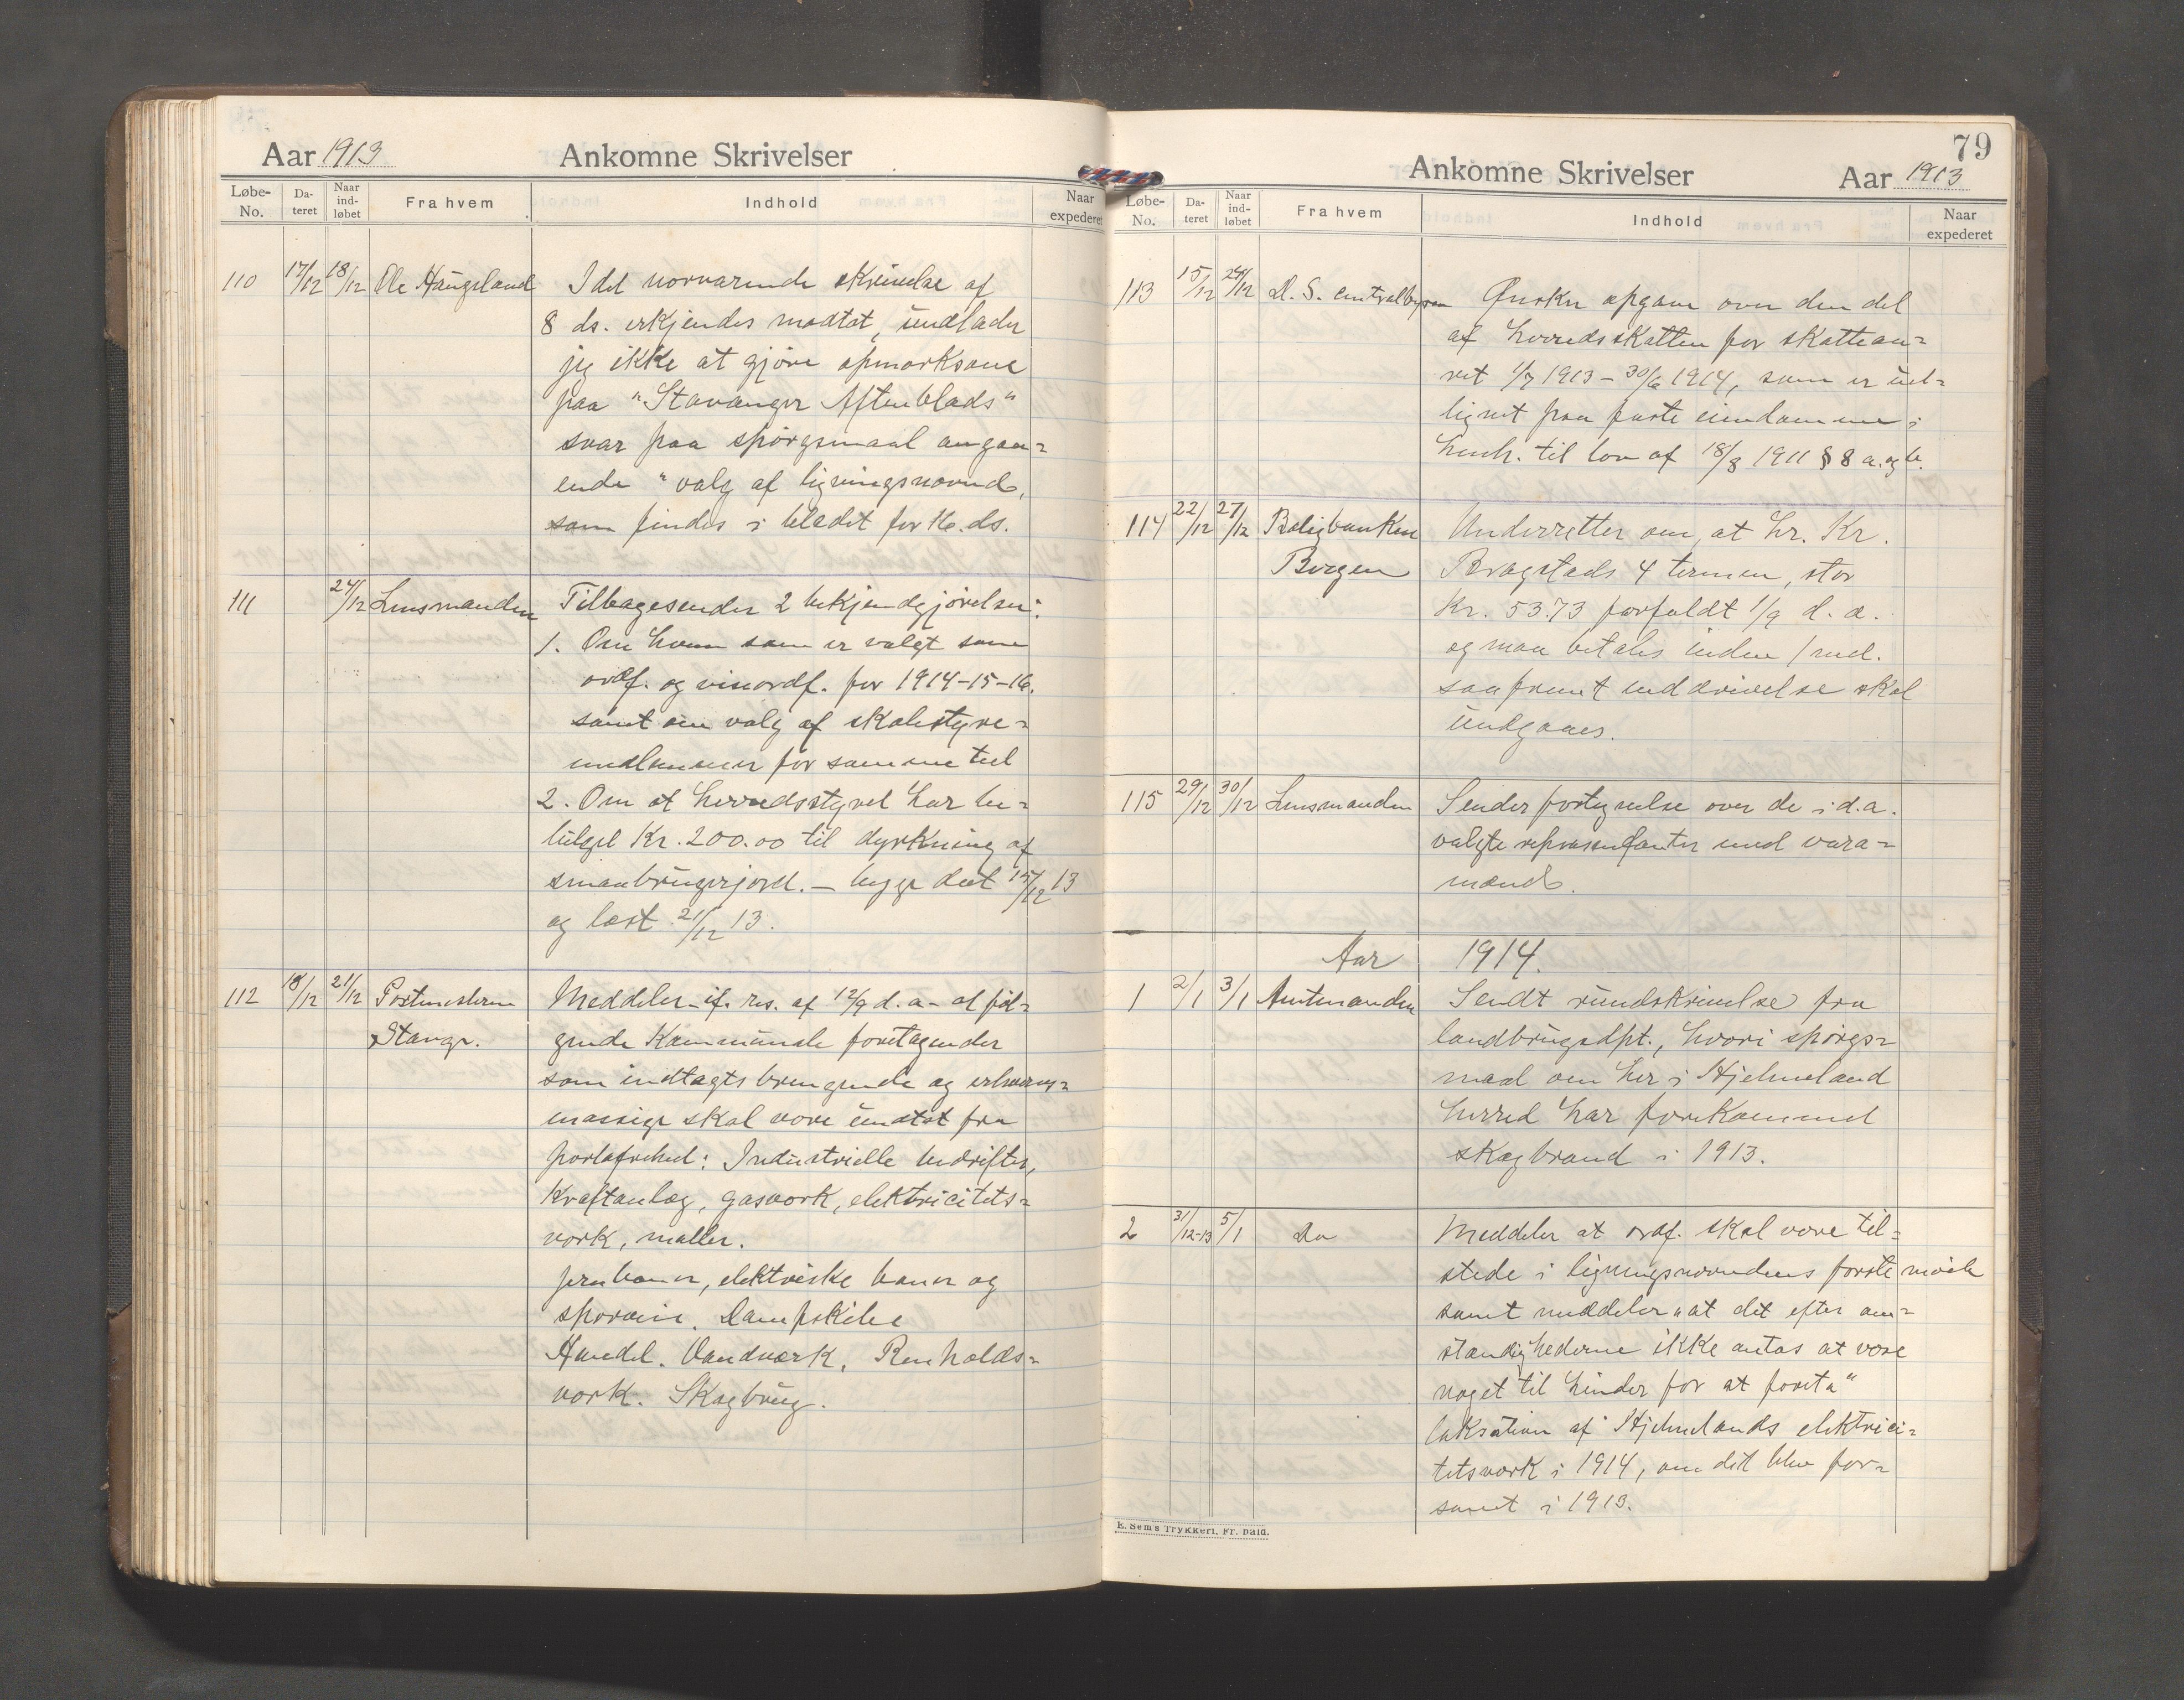 Aar 1913 Ankomne Skrivelser
Løbe-No. Dateret Naar indløbet Fra hvem Indhold Naar expederet
110 17/12 18/12 Ole Haugeland Idet nærværende skrivelse af
8 ds. erkjendes modtat, undlader
jeg ikke at gjøre opmerksom
paa "Stavanger Aftenblads"
svar paa spørgsmaal angaa-
ende "valg af ligningsnævnd,
som findes i bladet for 16. ds.
111 24/12 Lensmanden Tilbagesender 2 bekjendgjørelser:
1. Om hvem som er valgt som
ordf. og viseordf. for 1914-15-16.
samt om valg af skolestyre-
medlemmer for samme tid
2. Om at herredsstyret har be-
vilget Kr. 200.00 til dyrkning af
smaabrugerjord. – begge dat 15/12 13
og læst 21/12 13.
112 18/12 21/12 Postmesteren Meddeler if. res. af 12/9 d. a. at føl-
Stavgr. gende kommunale foretagender
som indtægtsbringende og erhvervs-
mæssige skal være undtat fra
portofrihed: Industrielle bedrifter,
Kraftanlæg, gasværk, elektricitets-
værk, møller.
jernbaner, elektriske baner og
sporveie. Dampskibe
Handel. Vandværk, Renholds-
værk. Skogbrug.
79
Ankomne Skrivelser Aar 1913
Løbe-No. Dateret Naar indløbet Fra hvem Indhold Naar expederet
113 15/12 24/12 D. S. Centralbyraa Ønsker opgave over den del
af herredsskatten for skatteaa-
ret 1/7 1913 – 30/6 1914, som er ut-
lignet paa faste eiendomme i
henh. til lov af 18/8 1911 § 8 a. og b.
114 22/12 27/12 Boligbanken Underretter om, at hr. Kr.
Bergen Bragstads 4 termin, stor
Kr. 53.73 forfaldt 1/9 d. a.
og maa betales inden 1 md.
saafremt inddrivelse skal
undgaaes.
115 29/12 30/12 Lensmanden Sender fortegnelse over de i d. a.
valgte repræsentanter med vara-
mænd.
Aar 1914.
1 2/1 3/1 Amtmanden Sendt rundskrivelse fra
landbrugsdpt., hvori spørgs-
maal om her i Hjelmeland
herred har forekommet
skogbrand i 1913.
2 31/12-13 5/1 Do Meddeler at ordf. skal være til-
stede i ligningsnævndens første møde
samt meddeler "at det efter om-
stændighederne ikke antas at være
noget til hinder for at foreta"
taksation af Hjelmelands elektrici-
tetsværk i 1914, om det blev for-
sømt i 1913.
E. Sem's Trykkeri, Fr. hald.